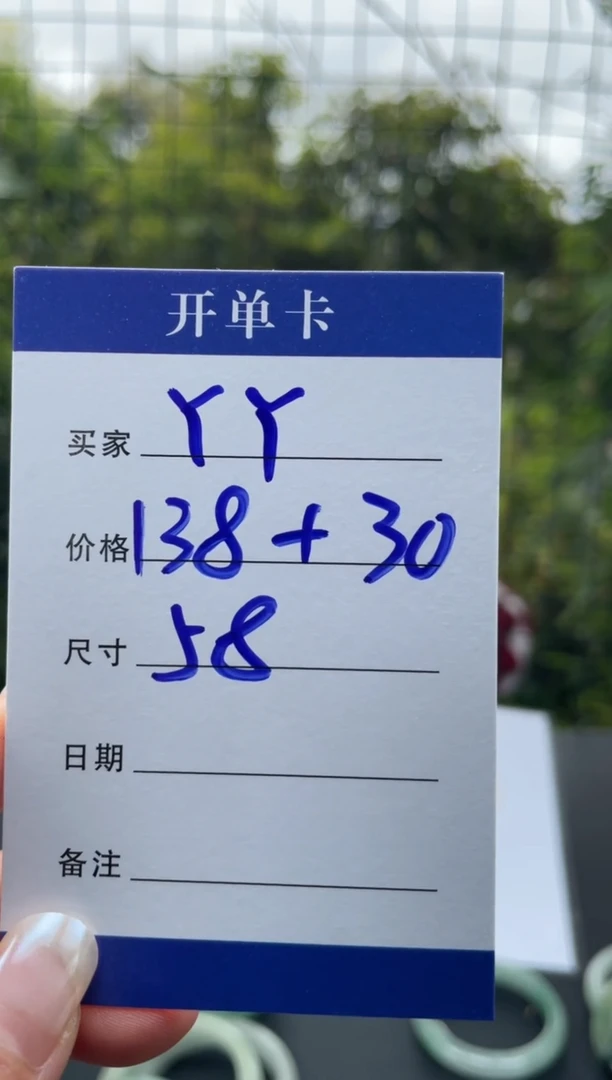 开单卡
买家 YY
价格 138+30
尺寸 58
日期
备注